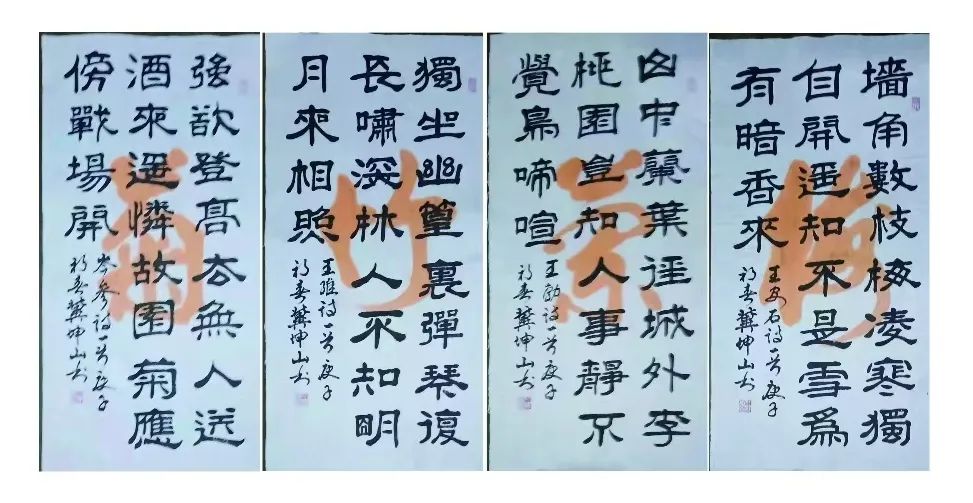 梅
墙角數枝梅凌寒獨
自開遥知不是雪爲
有暗香來
王安石诗一首 庚子
初春龔坤山书
蘭
山中蘭葉徑城外李
桃園豈知人事靜不
覺鳥啼喧
王勃诗一首 庚子
初春龔坤山书
竹
獨坐幽篁裏彈琴復
長嘯深林人不知明
月來相照
王維诗一首 庚子
初春龔坤山书
菊
強欲登高去無人送
酒來遥憐故園菊應
傍戰場開
岑參诗一首 庚子
初春龔坤山书